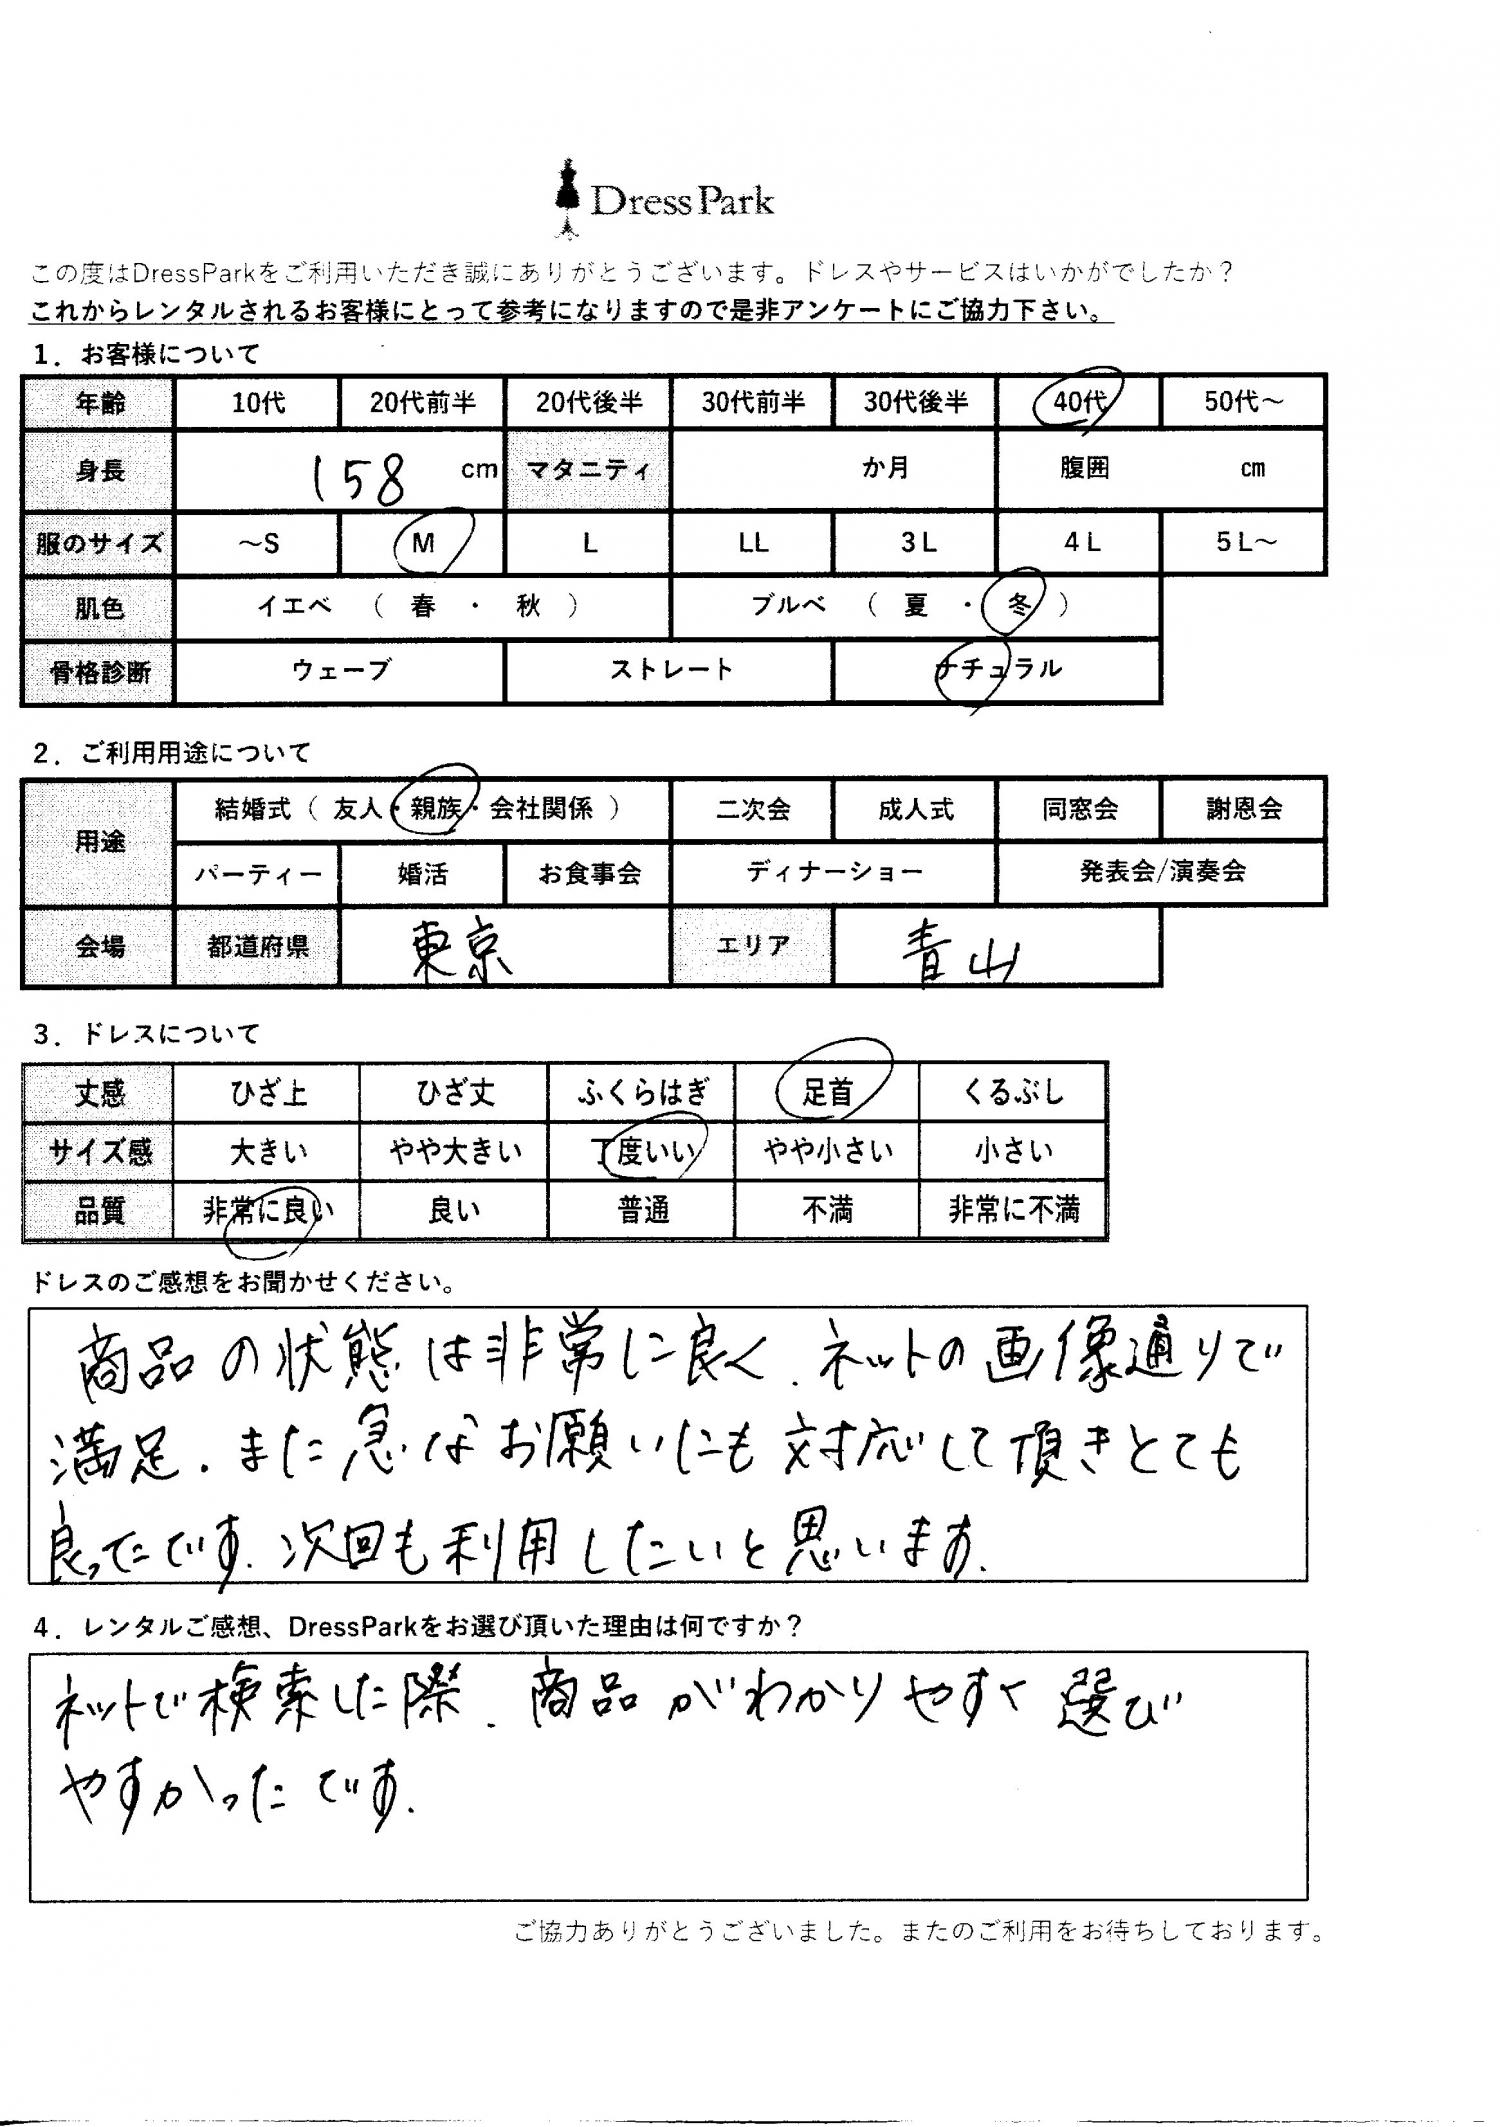 DressPark
この度はDressParkをご利用いただき誠にありがとうございます。ドレスやサービスはいかがでしたか？
これからレンタルされるお客様にとって参考になりますので是非アンケートにご協力下さい。
1．お客様について
年齢 10代 20代前半 20代後半 30代前半 30代後半 40代 50代～
身長 158 cm マタニティ か月 腹囲 cm
服のサイズ ～S M L LL 3L 4L 5L～
肌色 イエベ （ 春 ・ 秋 ） ブルベ （ 夏 ・ 冬 ）
骨格診断 ウェーブ ストレート ナチュラル
2．ご利用用途について
用途 結婚式（ 友人・親族・会社関係 ） 二次会 成人式 同窓会 謝恩会
パーティー 婚活 お食事会 ディナーショー 発表会/演奏会
会場 都道府県 東京 エリア 青山
3．ドレスについて
丈感 ひざ上 ひざ丈 ふくらはぎ 足首 くるぶし
サイズ感 大きい やや大きい 丁度いい やや小さい 小さい
品質 非常に良い 良い 普通 不満 非常に不満
ドレスのご感想をお聞かせください。
商品の状態は非常に良く、ネットの画像通りで
満足。また急なお願いにも対応して頂きとても
良ったです。次回も利用したいと思います。
4．レンタルご感想、DressParkをお選び頂いた理由は何ですか？
ネットで検索した際、商品がわかりやすく選び
やすかったです。
ご協力ありがとうございました。またのご利用をお待ちしております。